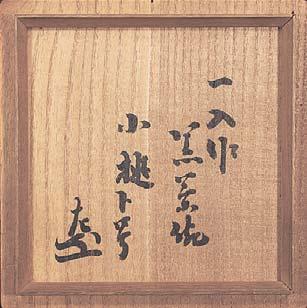 一入作
黒茶碗
小桃ト号
左